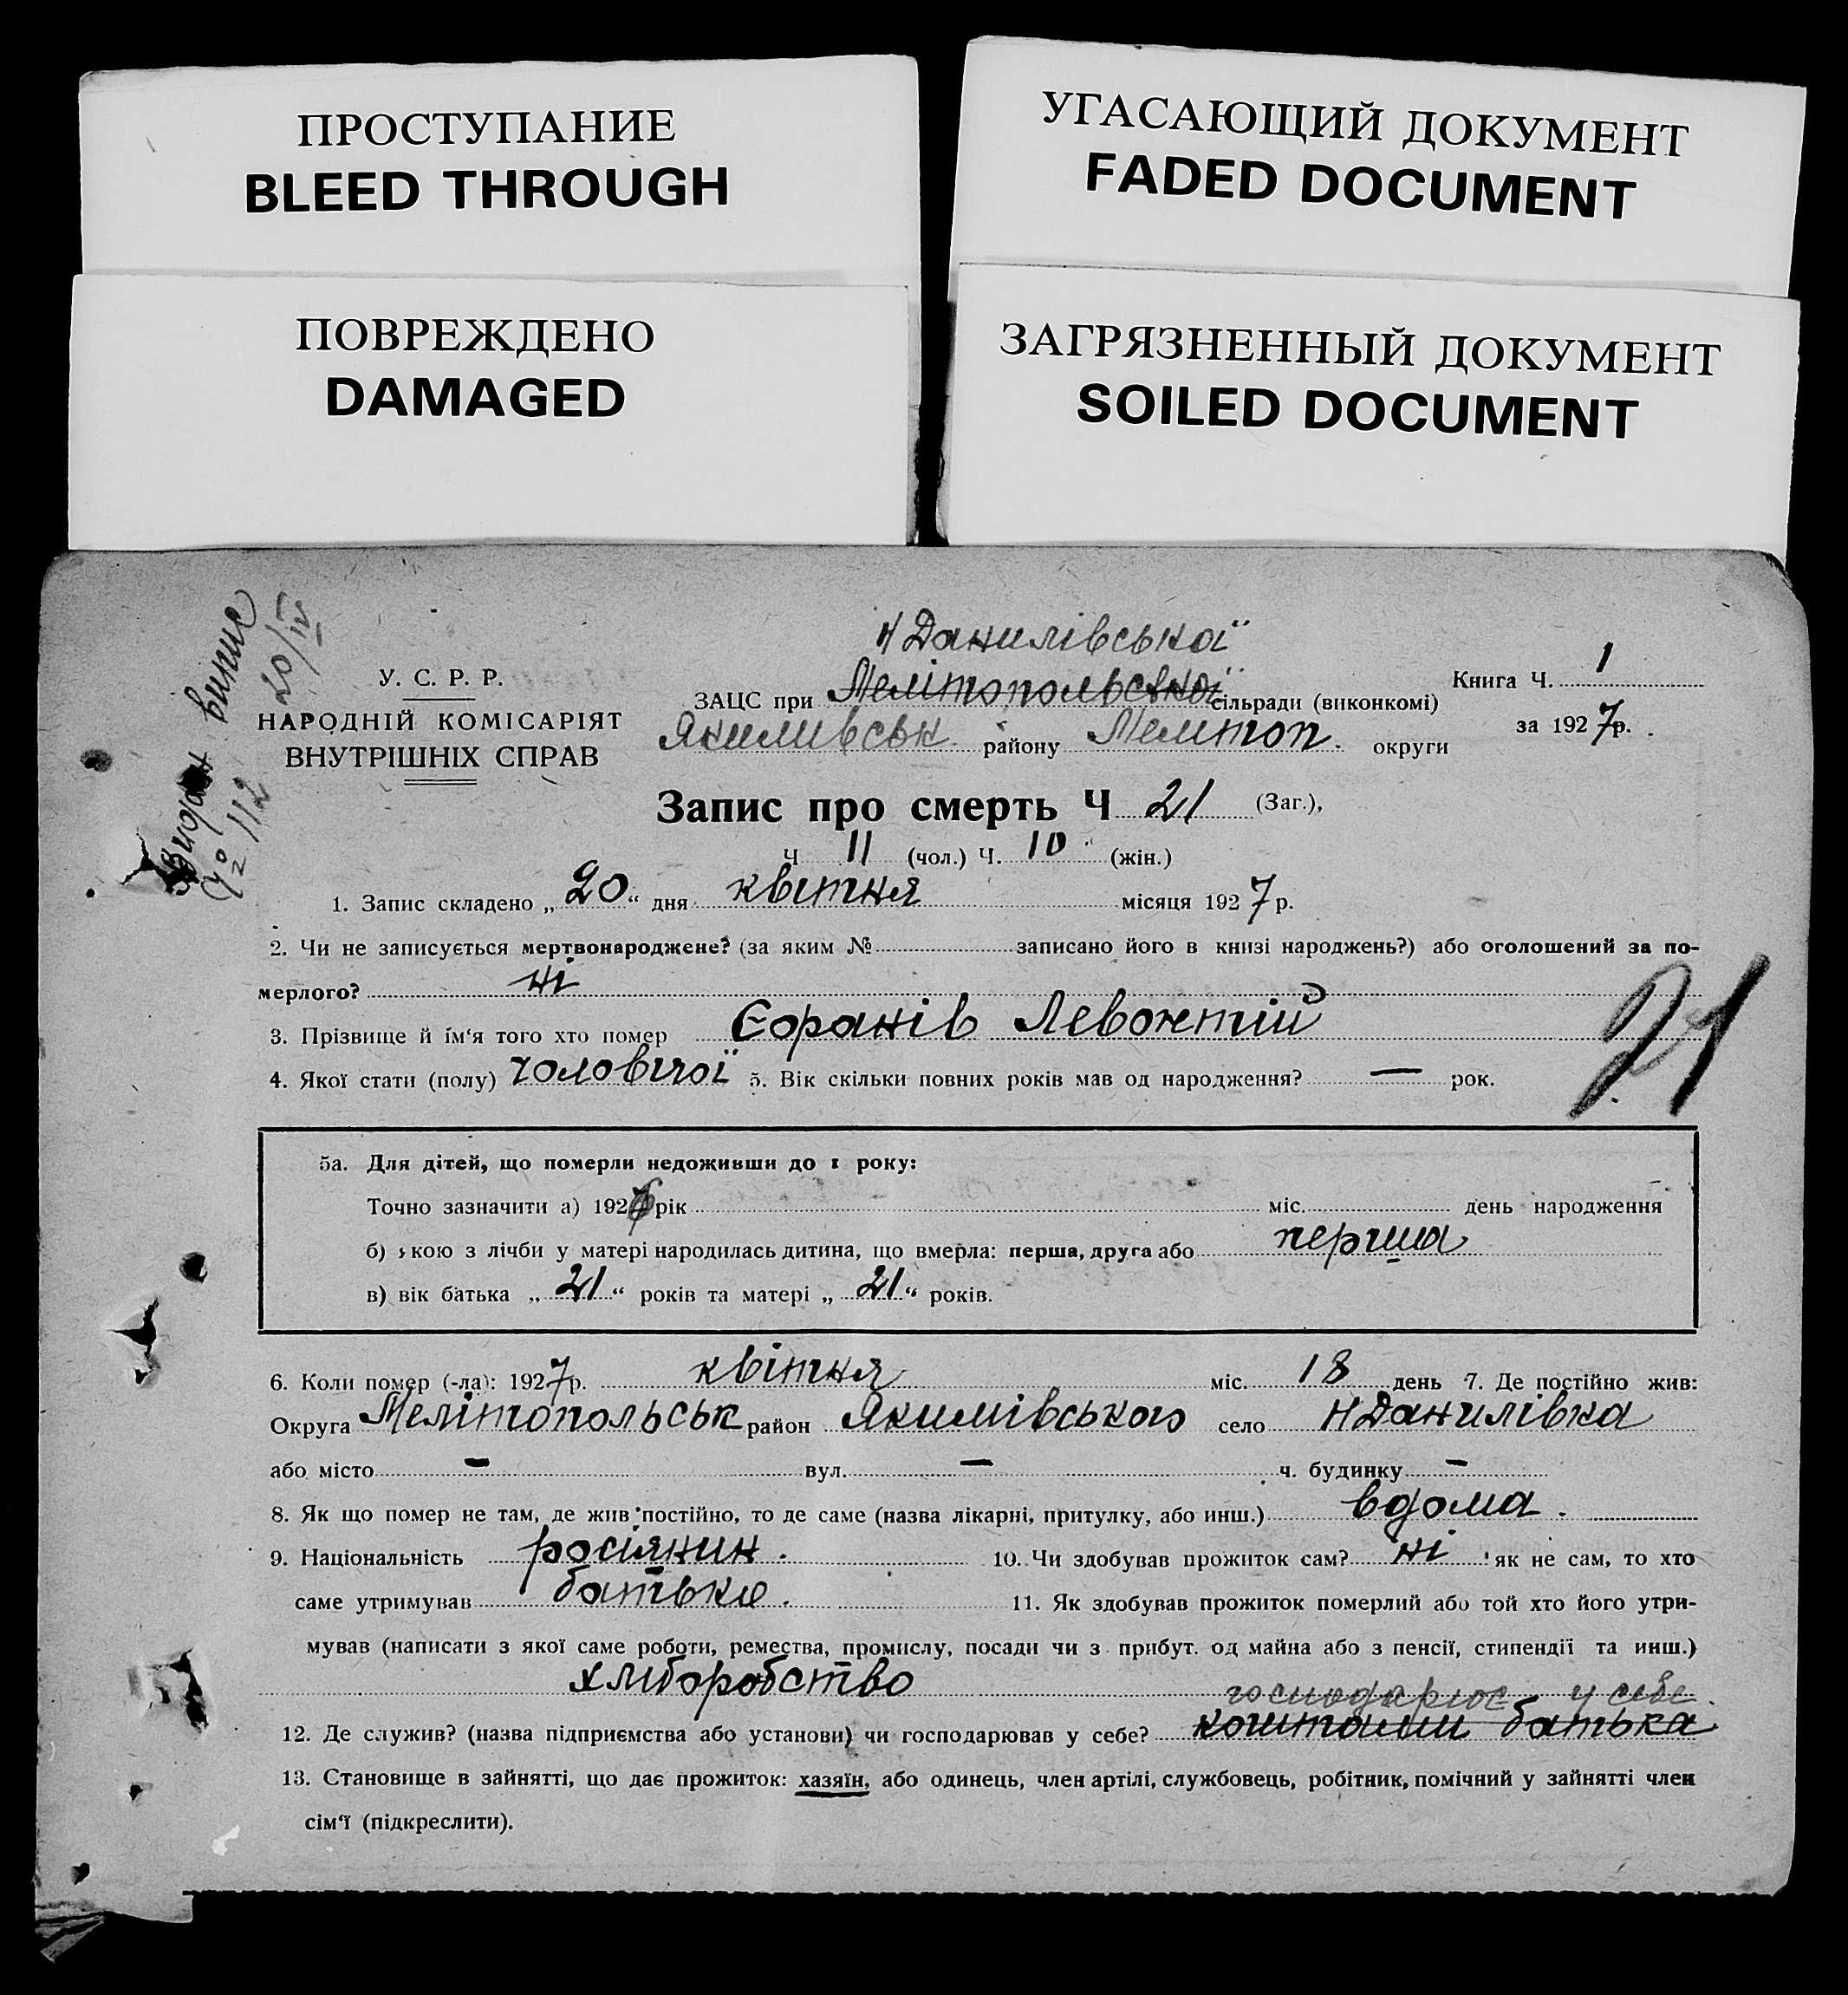 ПРОСТУПАНИЕ
BLEED THROUGH
УГАСАЮЩИЙ ДОКУМЕНТ
FADED DOCUMENT
ПОВРЕЖДЕНО
DAMAGED
ЗАГРЯЗНЕННЫЙ ДОКУМЕНТ
SOILED DOCUMENT
Видан випис
№ 112 20/IV
У. С. Р. Р.
НАРОДНІЙ КОМІСАРІЯТ
ВНУТРІШНІХ СПРАВ
Н Данилівської
ЗАЦС при Мелітопольської сільради (виконкомі)
Якимивськ району Мелітоп. округи
Книга Ч. 1
за 1927р.
Запис про смерть Ч 21 (Заг.),
Ч 11 (чол.) Ч. 10 (жін.)
1. Запис складено „20“ дня квітня місяця 1927р.
2. Чи не записується мертвонароджене? (за яким № записано його в книзі народжень?) або оголошений за по-
мерлого? ні
3. Прізвище й ім‘я того хто помер Єфранів Левонтій
21
4. Якої стати (полу) чоловічої 5. Вік скільки повних років мав од народження? — рок.
5а. Для дітей, що померли недоживши до 1 року:
Точно зазначити а) 1926 рік міс. день народження
б) якою з лічби у матері народилась дитина, що вмерла: перша, друга або перша
в) вік батька „21“ років та матері „21“ років.
6. Коли помер (-ла): 1927р. квітня міс. 18 день 7. Де постійно жив:
Округа Мелітопольськ район Якимівського село Н Данилівка
або місто — вул. — ч. будинку —
8. Як що помер не там, де жив постійно, то де саме (назва лікарні, притулку, або инш.) вдома.
9. Національність росіянин. 10. Чи здобував прожиток сам? ні як не сам, то хто
саме утримував батько. 11. Як здобував прожиток померлий або той хто його утри-
мував (написати з якої саме роботи, ремества, промислу, посади чи з прибут. од майна або з пенсії, стипендії та инш.)
хліборобство
господарює у себе.
12. Де служив? (назва підприємства або установи) чи господарював у себе? коштами батька
13. Становище в зайнятті, що дає прожиток: хазяїн, або одинець, член артілі, службовець, робітник, помічний у зайнятті член
сім‘ї (підкреслити).